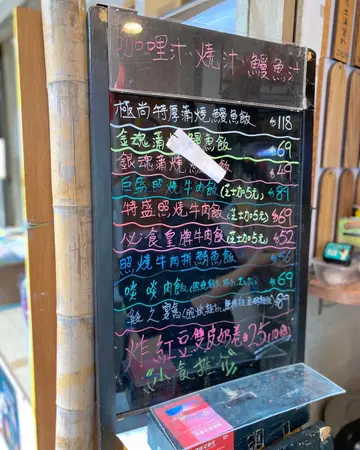 咖哩汁、燒汁、鰻魚汁
極尚特厚蒲燒鰻魚飯 $118
金魂蒲燒鰻魚飯 $69
銀魂蒲燒鰻魚飯 $49
巨無照燒牛肉飯(芝士加5元) $89
特盛照燒牛肉飯(芝士加5元) $69
必食皇牌牛肉飯(芝士加5元) $52
照燒牛肉拼鯛魚飯 $56
啖啖肉飯 $69
雞之 $89
炸紅豆雙皮奶卷 $25
小食拼